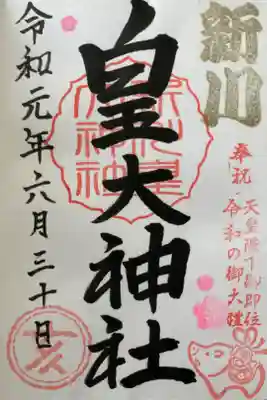 新川
奉祝 天皇陛下御即位
令和の御大禮
皇大神社
令和元年六月三十日
亥